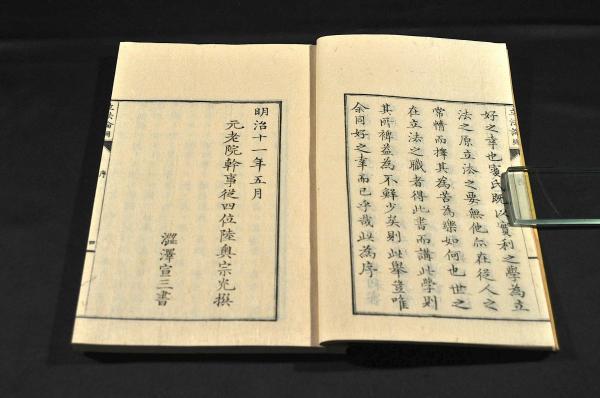 立法論綱
好之幸也氏既以實利之學為立
法之原立法之要無他亦在從人之
常情而擇其為苦為樂如何也世之
在立法之職者得此書而講此學則
其所裨益為不鮮少矣則此舉豈唯
余同好之幸而已乎哉為序
明治十一年五月
元老院幹事從四位陸奥宗光撰
澀澤宣三書
立法論綱
序
四